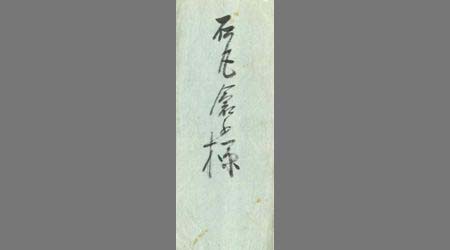 石丸倉子様